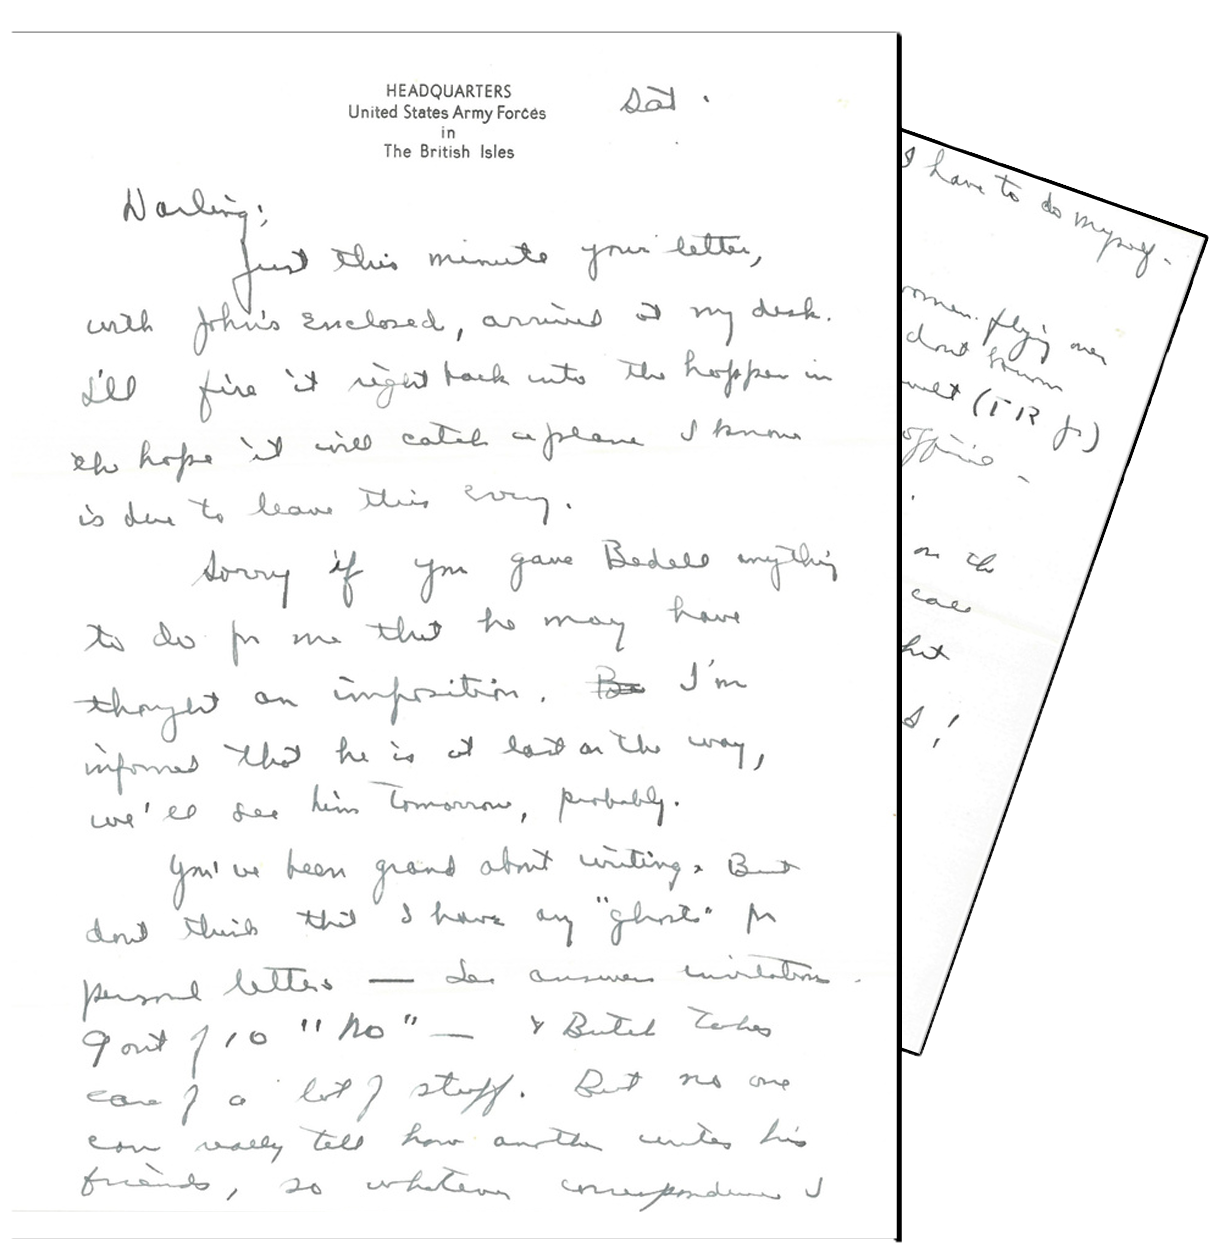 HEADQUARTERS
United States Army Forces
in
The British Isles
Sat.
Darling:
Just this minute your letter,
with John's enclosed, arrived at my desk.
I'll fire it right back into the hopper in
the hope it will catch a plane I know
is due to leave this evng.
Sorry if you gave Bedell anything
to do for me that he may have
thought an imposition. I'm
informed that he is at last on the way,
we'll see him tomorrow, probably.
You've been grand about writing. But
dont think that I have any "ghosts" for
personal letters — Lee answers invitations.
9 out of 10 "No" — & Butch takes
care of a lot of stuff. But no one
can really tell how another writes his
friends, so whatever correspondence I
I have to do myself.
women flying over
dont know
(TR Jr)
office -
on the
care
!